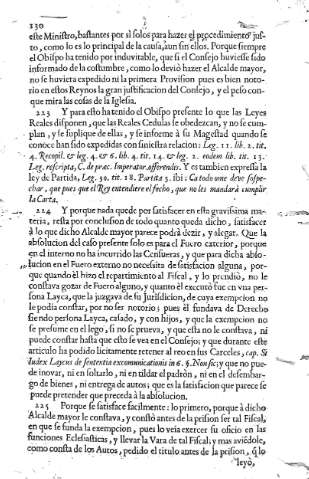 230
este Ministro, bastantes por si solos para hazer el procedimiento jus-
to, como lo es lo principal de la causa, aun sin ellos. Porque siempre
el Obispo ha tenido por induvitable, que si el Consejo huviesse sido
informado de la costumbre, como lo devió hazer el Alcalde mayor,
no se huviera expedido ni la primera Provision pues es bien noto-
rio en estos Reynos la gran justificacion del Consejo, y el peso con-
que mira las cosas de la Iglesia.
223 Y para esto ha tenido el Obispo presente lo que las Leyes
Reales disponen, que las Reales Cedulas se obedezcan, y no se cum-
plan, y se suplique de ellas, y se informe à su Magestad quando se
conoce han sido expedidas con siniestra relacion: Leg. 11. lib. 2. tit,
4. Recopil. & leg. 4. & 6. lib. 4. tit. 14. & leg. 2. eodem lib. tit. 13.
Leg. rescripta, C. de prac. Imperator. offerendis. Y es tambien expressa la
ley de Partida, Leg. 30. tit. 18. Partita 3. ibi: Ca todo ome deve sospe-
char, que pues que el Rey entendiere el fecho, que no les mandará cumplir
la Carta.
224 Y porque nada quede por satisfacer en esta gravissima ma-
teria, resta por conclusion de todo quanto queda dicho, satisfacer
à lo que dicho Alcalde mayor parece podrà dezir, y alegar. Que la
absolucion del caso presente solo es para el Fuero exterior, porque
en el interno no ha incurrido las Censuras, y que para dicha abso-
lucion en el Fuero externo no necessita de satisfacion alguna, por-
que quando èl hizo el repartimiento al Fiscal, y lo prendiò, no le
constava gozar de Fuero alguno, y quanto èl executò fue en vna per-
sona Layca, que la juzgava de su Jurisdicion, de cuya exempcion no
le podia constar, por no ser notorio; pues èl fundava de Derecho
siendo persona Layca, casado, y con hijos, y que la exempcion no
se presume en el lego, si no se prueva, y que esta no le constava, ni
puede constar hasta que esto se vea en el Consejo; y que durante este
articulo ha podido licitamente retener al reo en sus Carceles, cap. Si
Iudex Laycus de sententia excommunicationis in 6. §. Non sic; y que no pue-
de inovar, ni en soltarlo, ni en tildar el padron, ni en el desembar-
go de bienes, ni entrega de autos; que es la satisfacion que parece se
puede pretender que preceda à la absolucion.
225 Porque se satisface facilmente: lo primero, porque à dicho
Alcalde mayor le constava, y constò antes de la prision ser tal Fiscal,
en que se funda la exempcion, pues lo veia exercer su oficio en las
funciones Eclesiasticas, y llevar la Vara de tal Fiscal; y mas aviendole,
como consta de los Autos, pedido el titulo antes de la prision, q̃ lo
leyò,